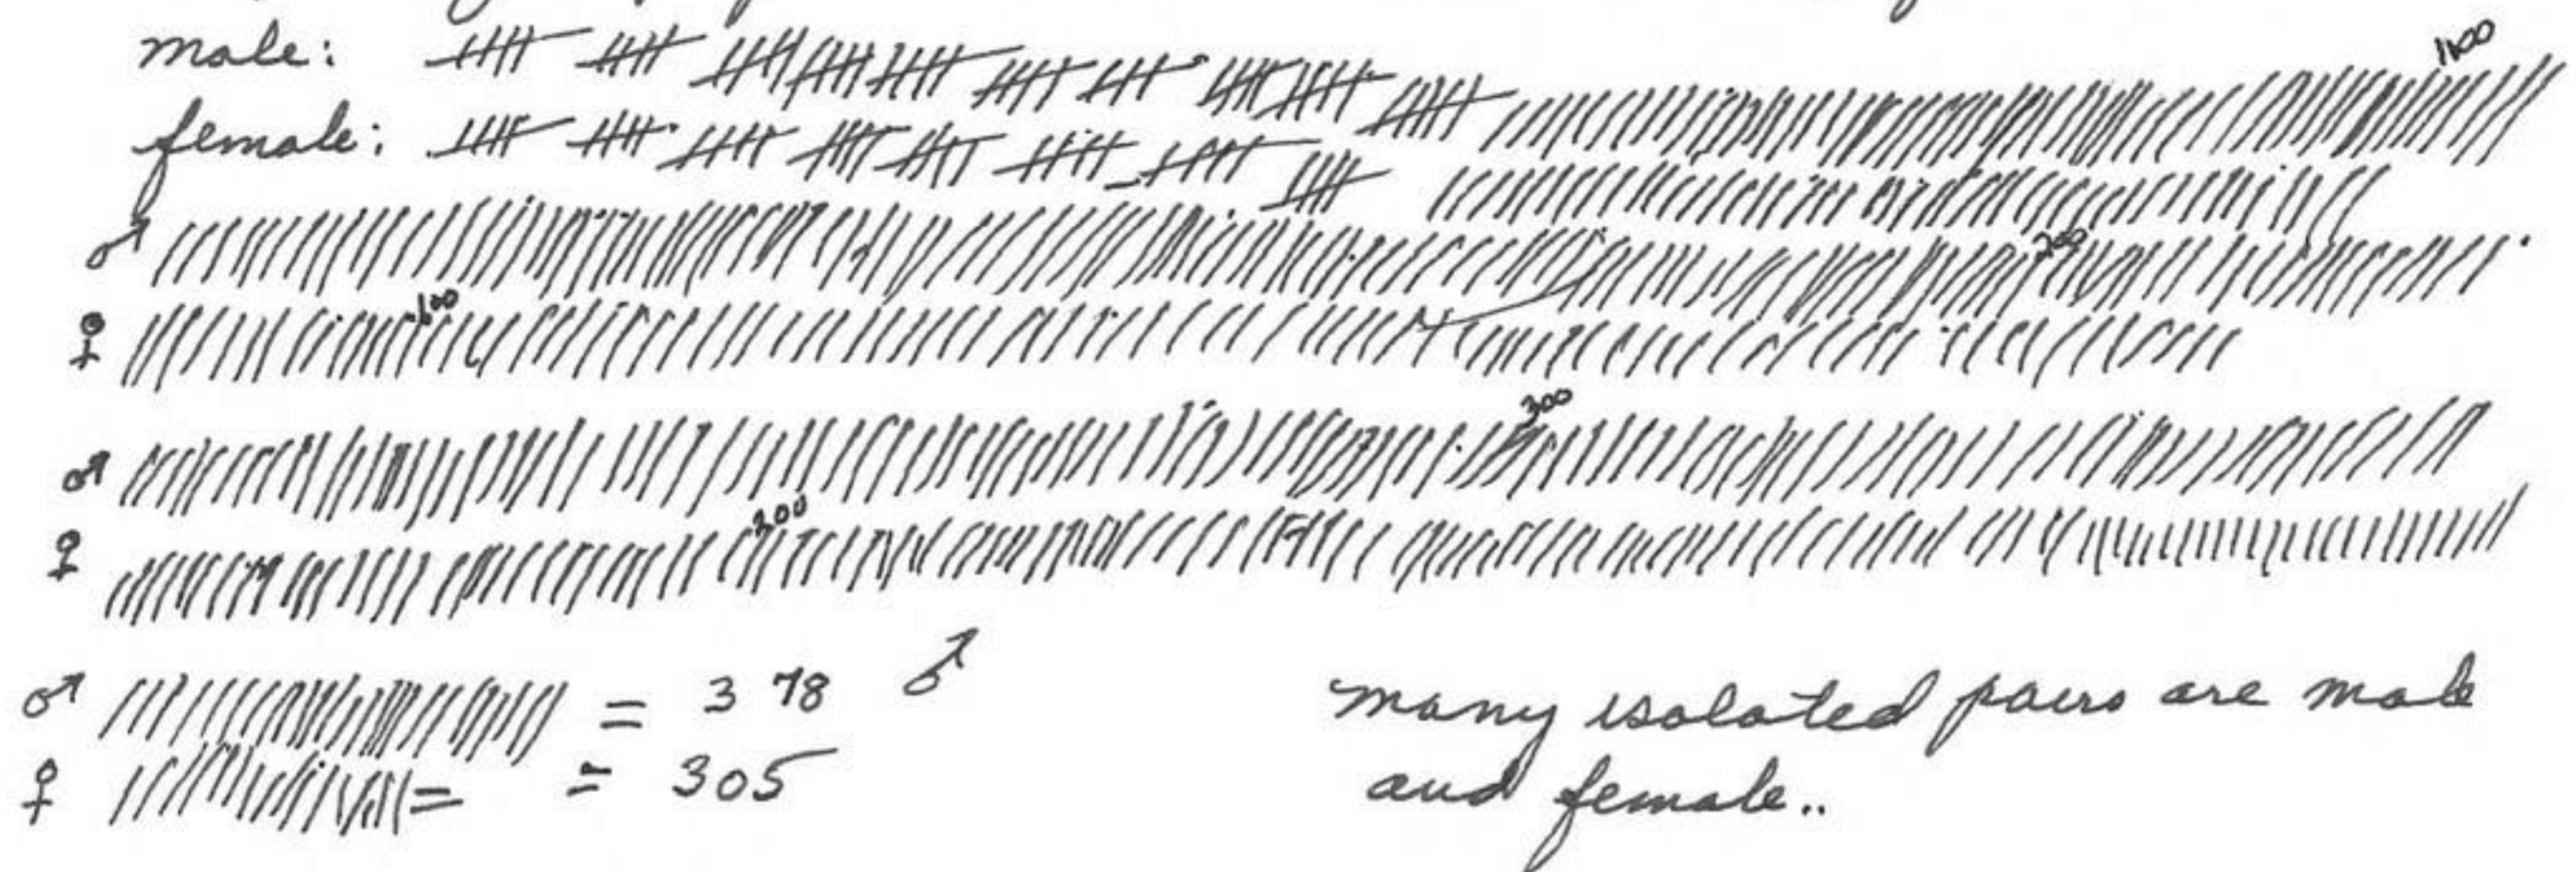 male: 1100
female:
♂ 200
♀ 100
♂ 300
♀ 200
♂ = 378 ♂
♀ = = 305
many isolated pairs are male
and female..